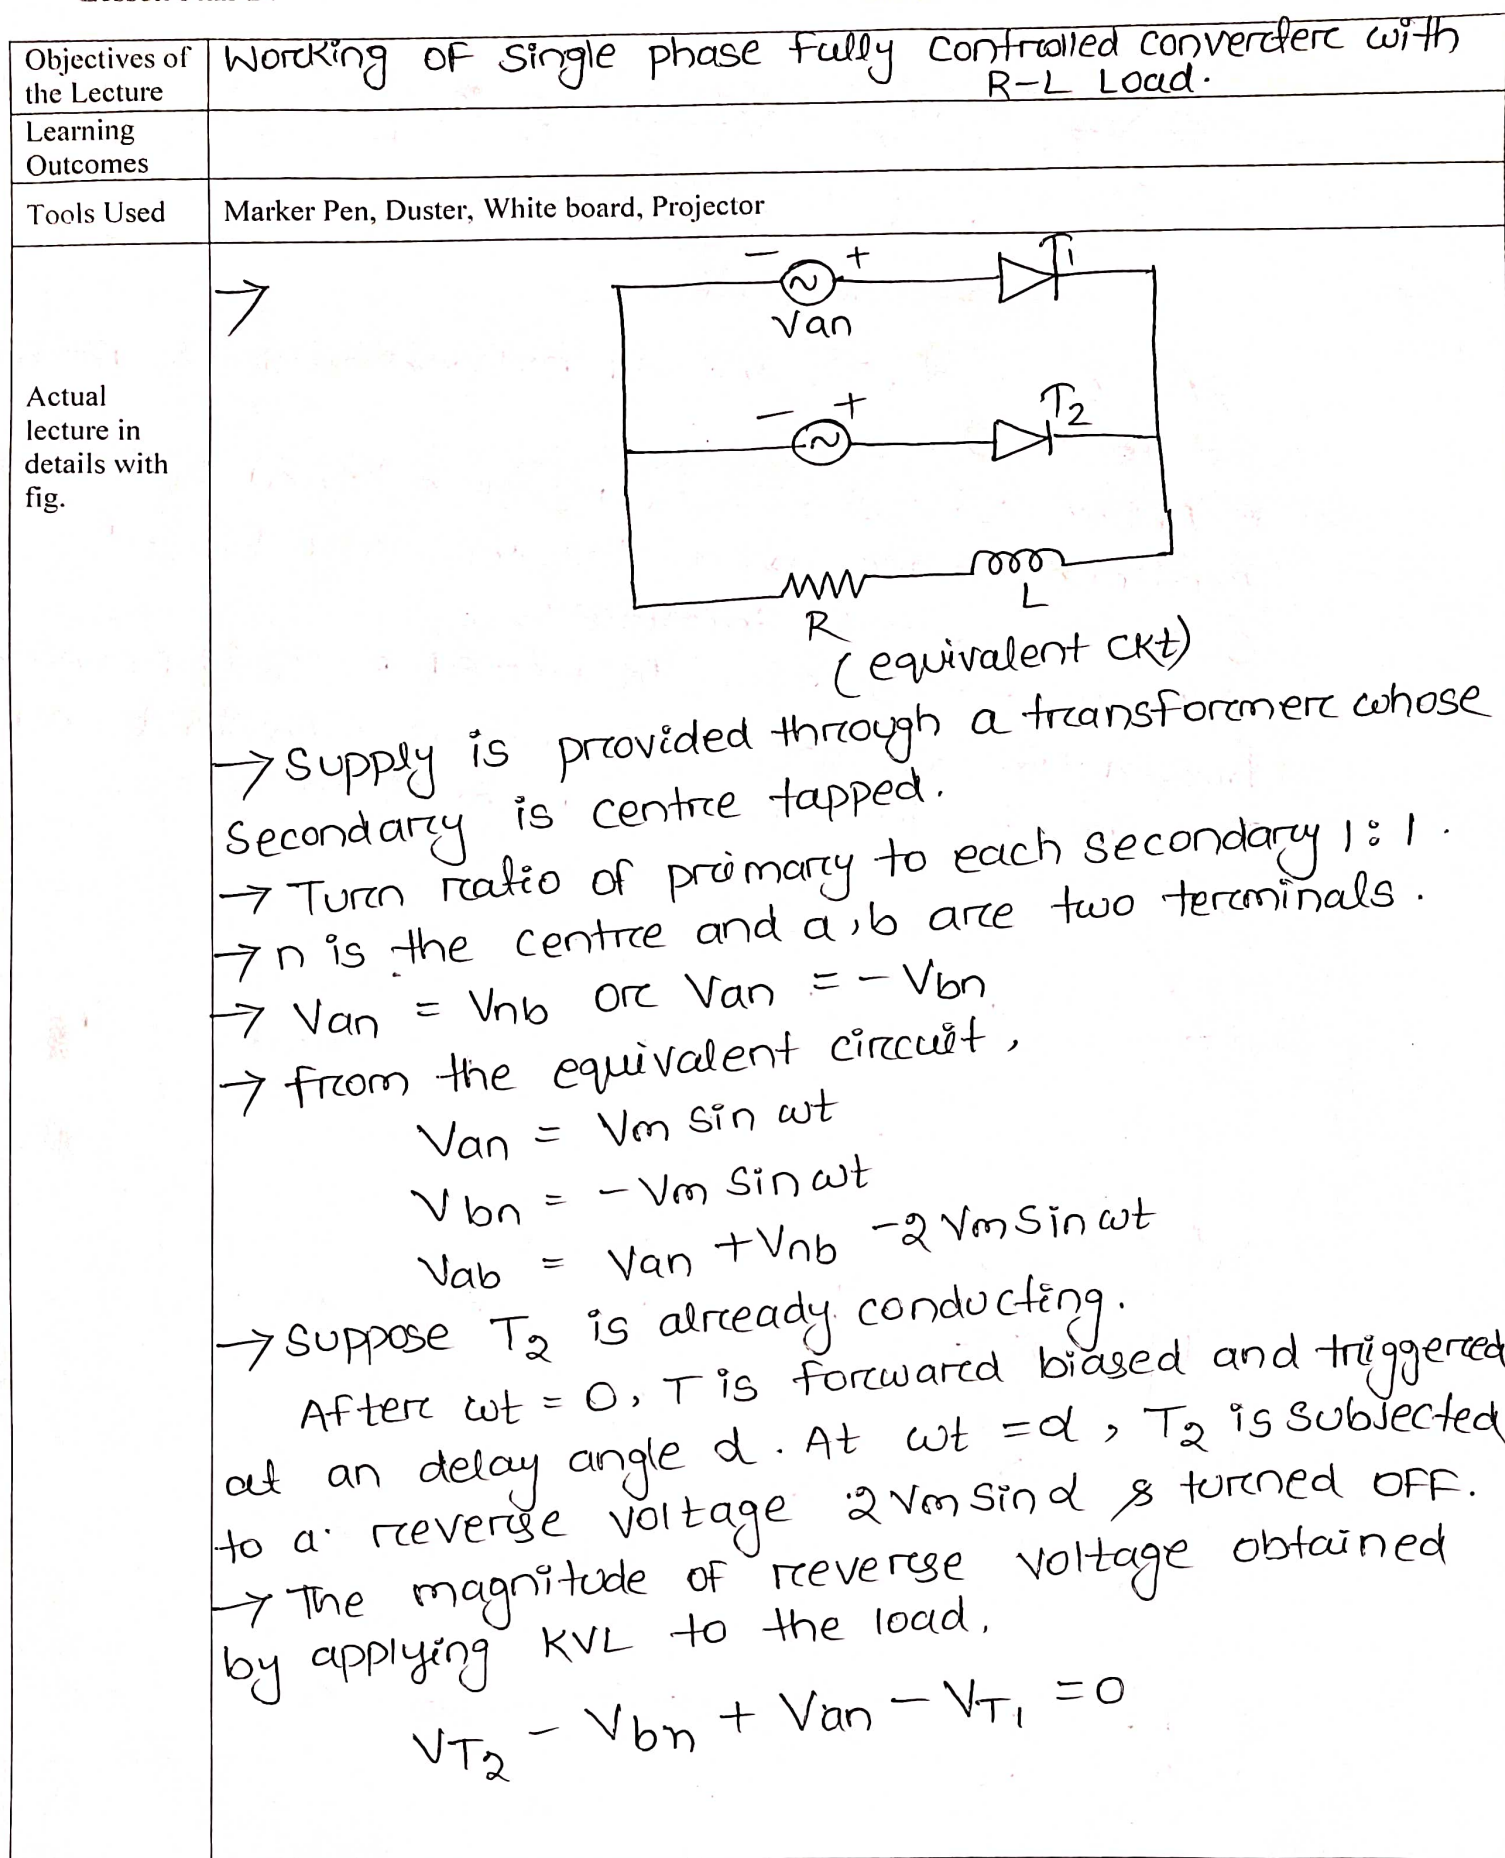 Objectives of the Lecture
Working of single phase fully controlled converter with
R-L Load.
Learning Outcomes
Tools Used
Marker Pen, Duster, White board, Projector
Actual lecture in details with fig.
→
- + T1
Van
- + T2
R L
(equivalent ckt)
→ Supply is provided through a transformer whose
Secondary is centre tapped.
→ Turn ratio of primary to each secondary 1:1.
→ n is the centre and a,b are two terminals.
→ Van = Vnb or Van = - Vbn
→ from the equivalent circuit,
Van = Vm sin ωt
Vbn = - Vm sin ωt
Vab = Van + Vnb - 2 Vm sin ωt
→ Suppose T2 is already conducting.
After ωt = 0, T is forward biased and triggered
at an delay angle α. At ωt = α, T2 is subjected
to a reverse voltage 2 Vm sin α & turned OFF.
→ The magnitude of reverse voltage obtained
by applying KVL to the load,
VT2 - Vbn + Van - VT1 = 0